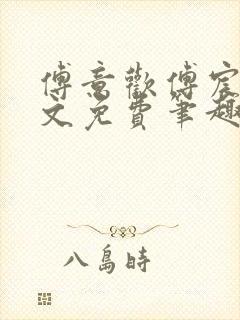 傅意歡傅宸
文免費筆趣
八島時